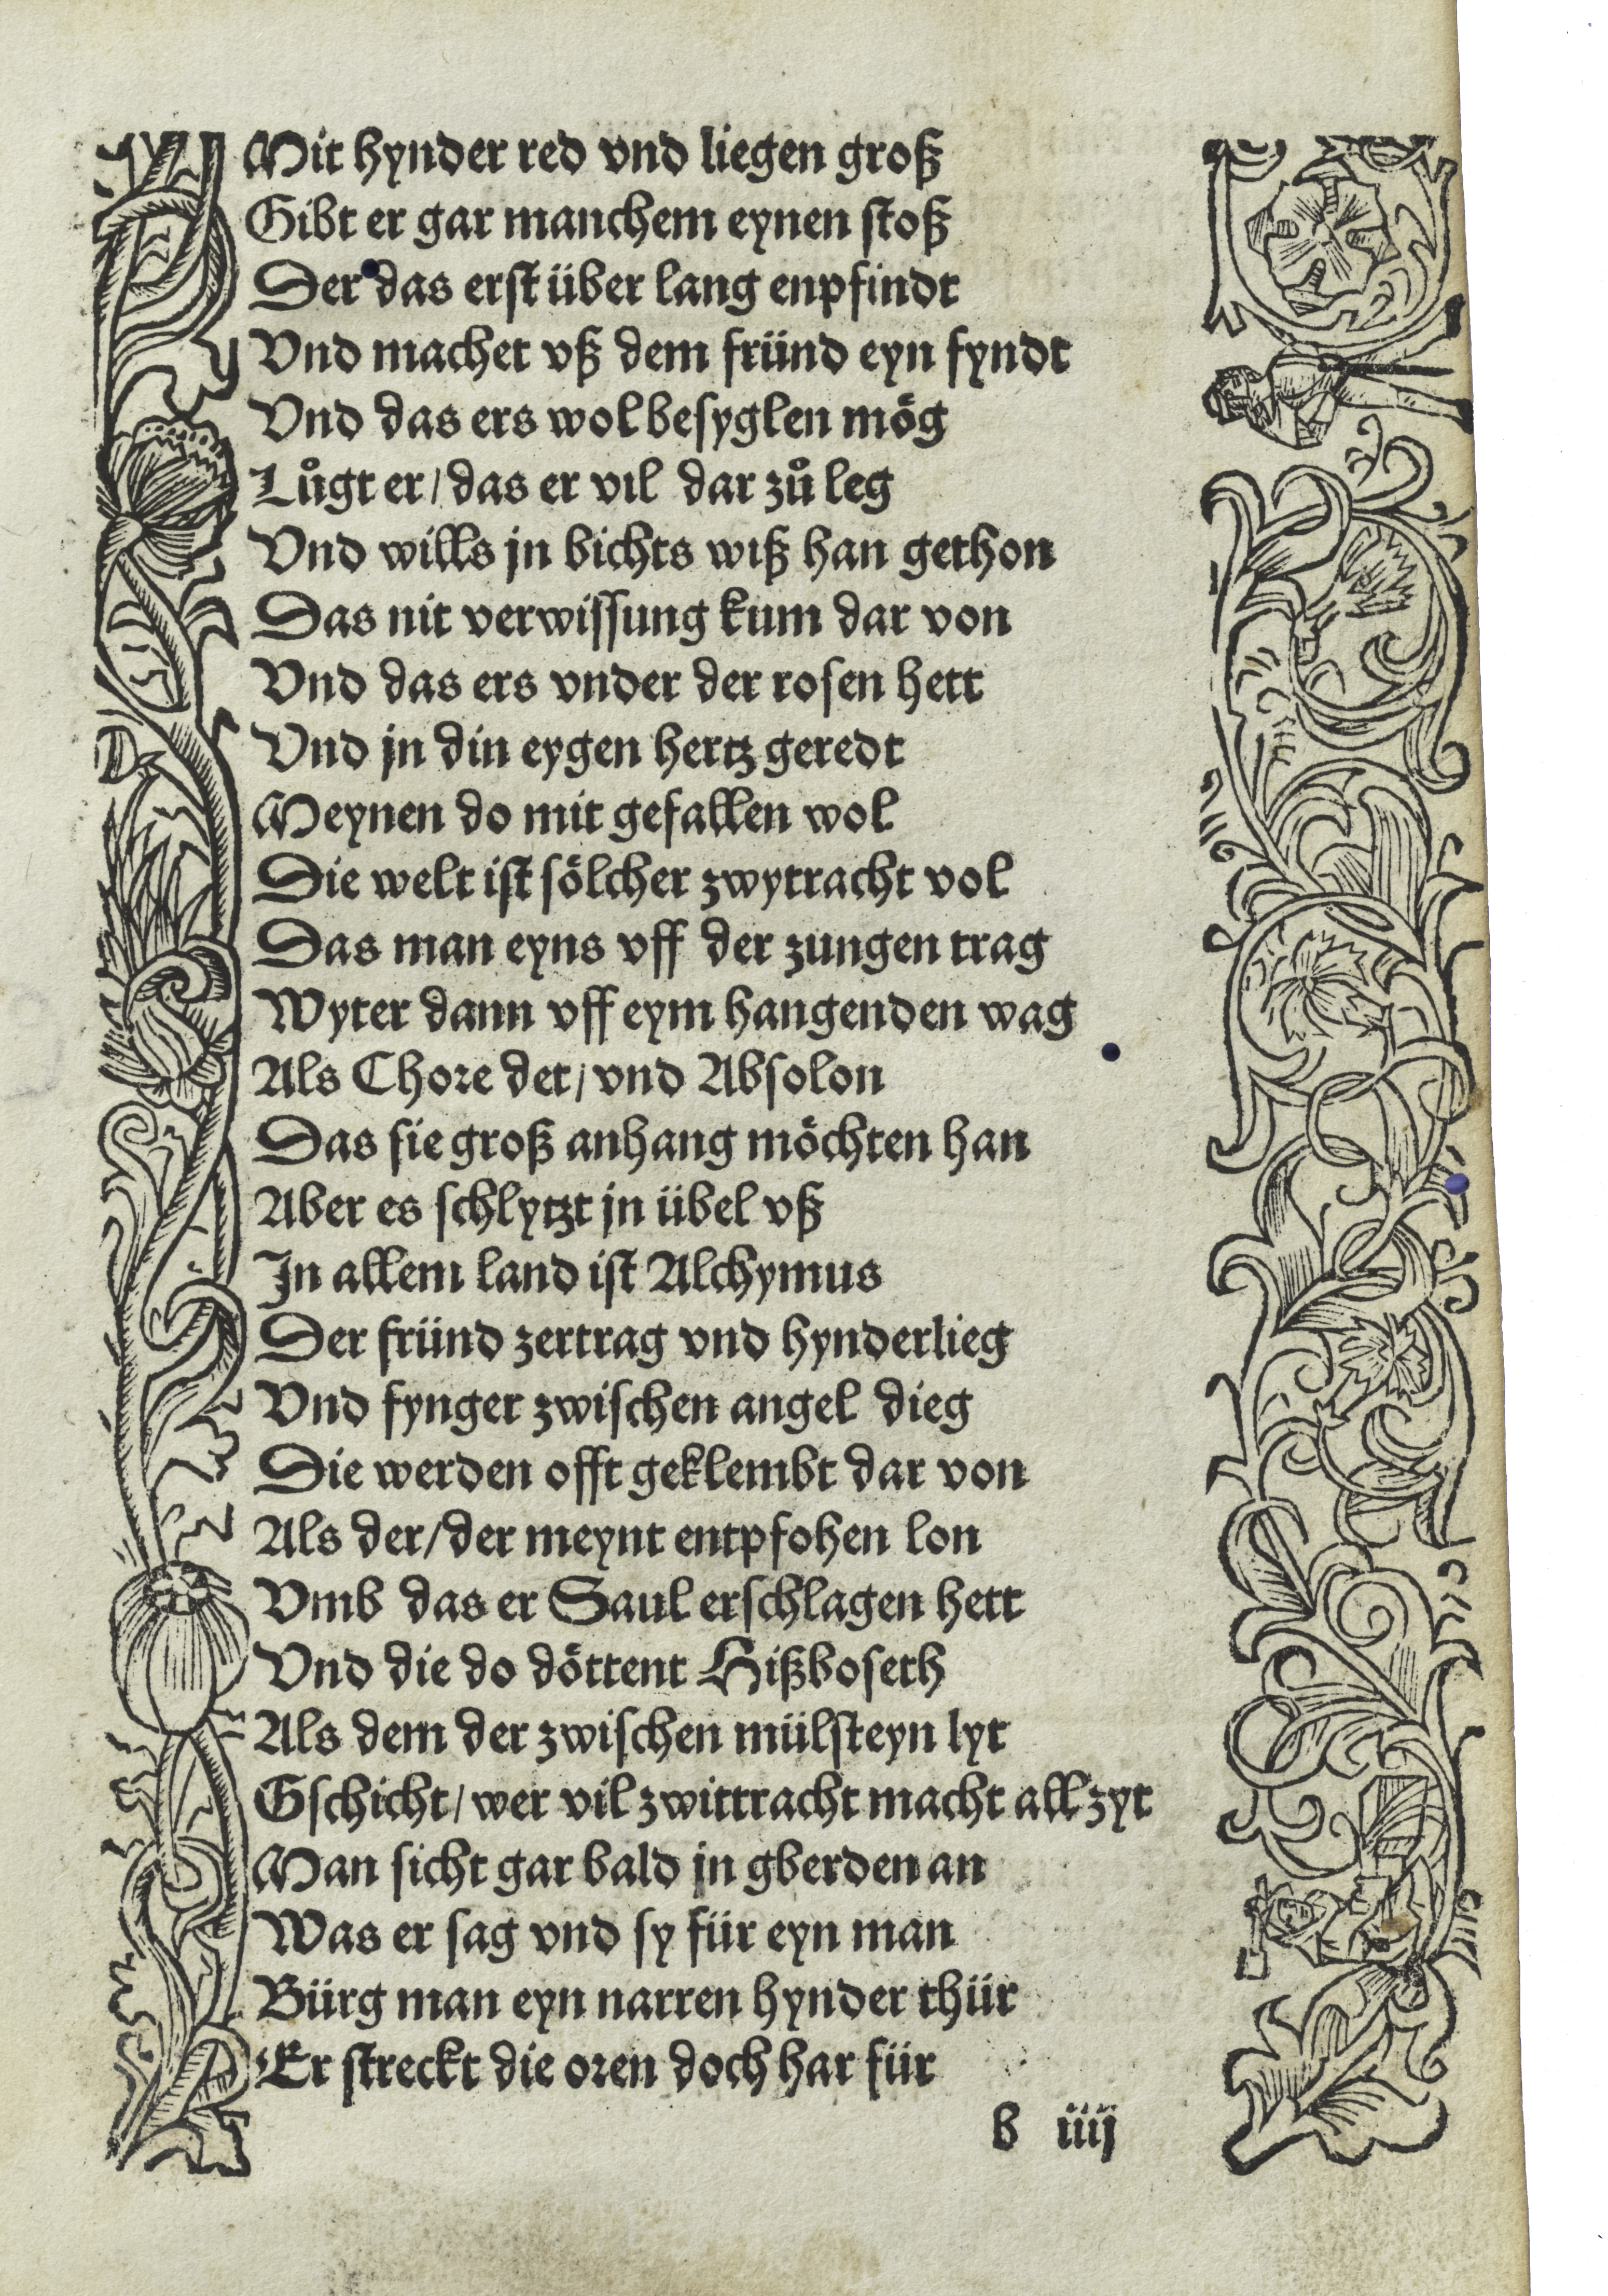 Mit hynder red vnd liegen groß
Gibt er gar manchem eynen stoß
Der das erst über lang enpfindt
Vnd machet vß dem fründ eyn fyndt
Vnd das ers wol besyglen mög
Lůgt er / das er vil dar zů leg
Vnd wills jn bichts wiß han gethon
Das nit verwissung kum dar von
Vnd das ers vnder der rosen hett
Vnd jn din eygen hertz geredt
Meynen do mit gefallen wol
Die welt ist sölcher zwytracht vol
Das man eyns vff der zungen trag
Wyter dann vff eym hangenden wag
Als Chore det / vnd Absolon
Das sie groß anhang möchten han
Aber es schlytzt jn übel vß
In allem land ist Alchymus
Der fründ zertrag vnd hynderlieg
Vnd fynger zwischen angel dieg
Die werden offt geklembt dar von
Als der / der meynt entpfohen lon
Vmb das er Saul erschlagen hett
Vnd die do döttent Hißboseth
Als dem der zwischen mülsteyn lyt
Gschicht / wer vil zwittracht macht all zyt
Man sicht gar bald jn gberden an
Was er sag vnd sy für eyn man
Bürg man eyn narren hynder thür
Er streckt die oren doch har für
b iiij